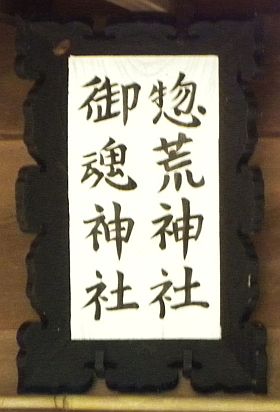 惣荒神社
御魂神社